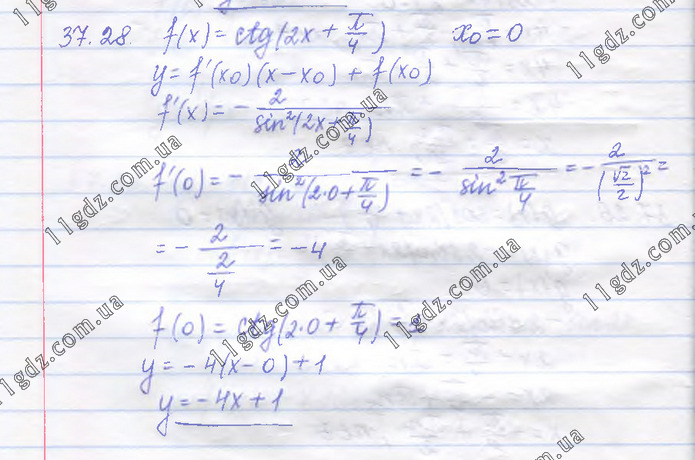 37.28. f(x) = ctg(2x + π/4) x₀ = 0
y = f'(x₀)(x − x₀) + f(x₀)
f'(x) = − 2/sin²(2x + π/4)
f'(0) = − 2/sin²(2·0 + π/4) = − 2/sin² π/4 = − 2/(√2/2)² =
= − 2/(2/4) = −4
f(0) = ctg(2·0 + π/4) = 1
y = −4(x − 0) + 1
y = −4x + 1
11gdz.com.ua
11gdz.com.ua
11gdz.com.ua
11gdz.com.ua
11gdz.com.ua
11gdz.com.ua
11gdz.com.ua
11gdz.com.ua